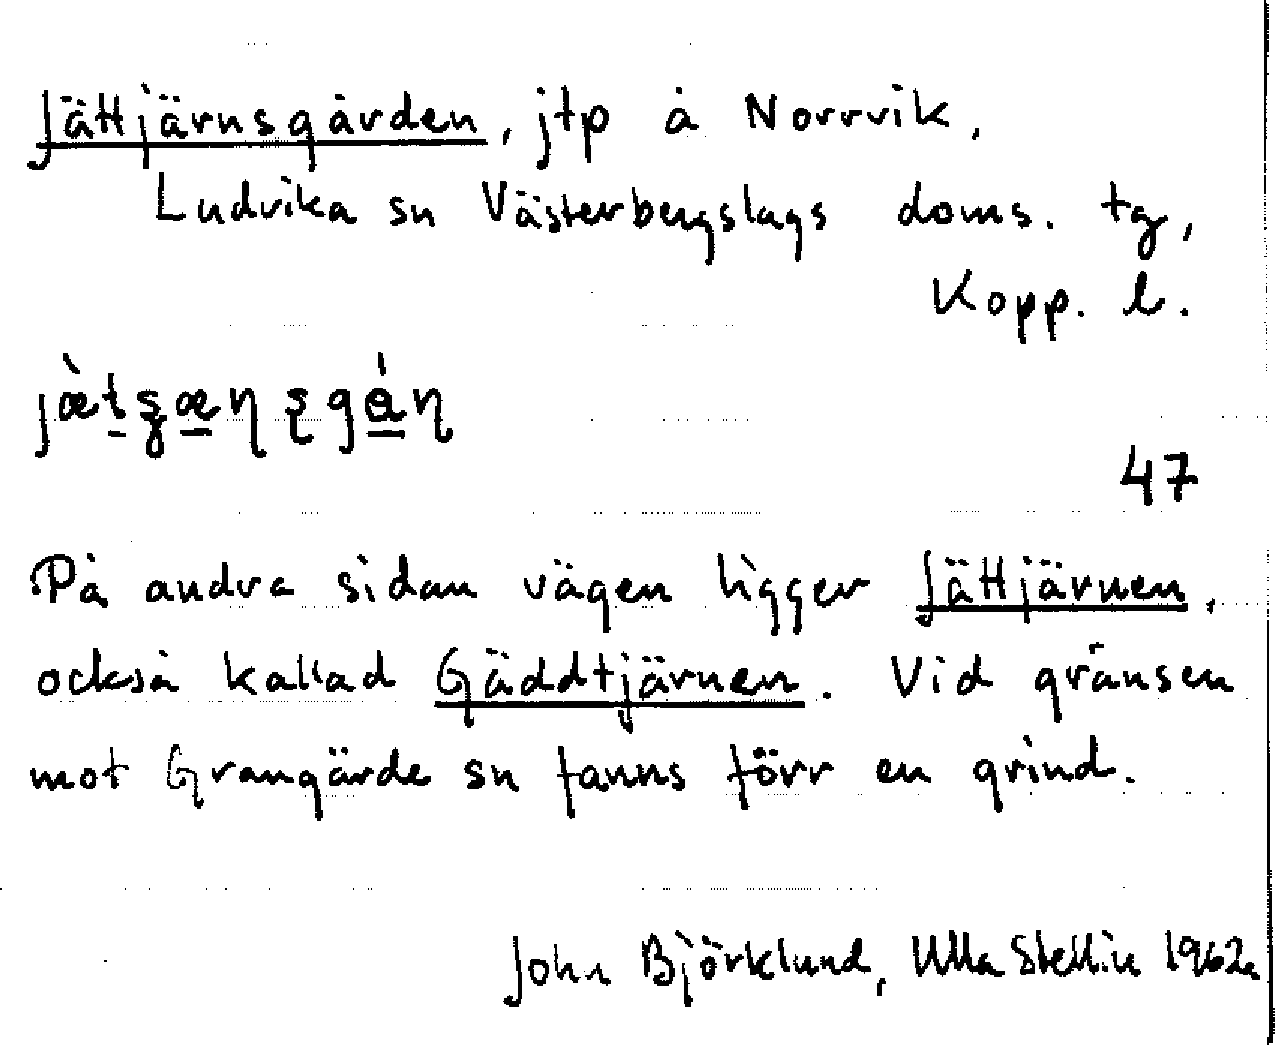 Jättjärnsgården, jtp å Norrvik,
Ludvika sn Västerbergslags doms. tg,
Kopp. l.
47
På andra sidan vägen ligger Jättjärnen,
också kallad Gäddtjärnen. Vid gränsen
mot Grangärde sn fanns förr en grind.
John Björklund, Ulla Stellin 1962